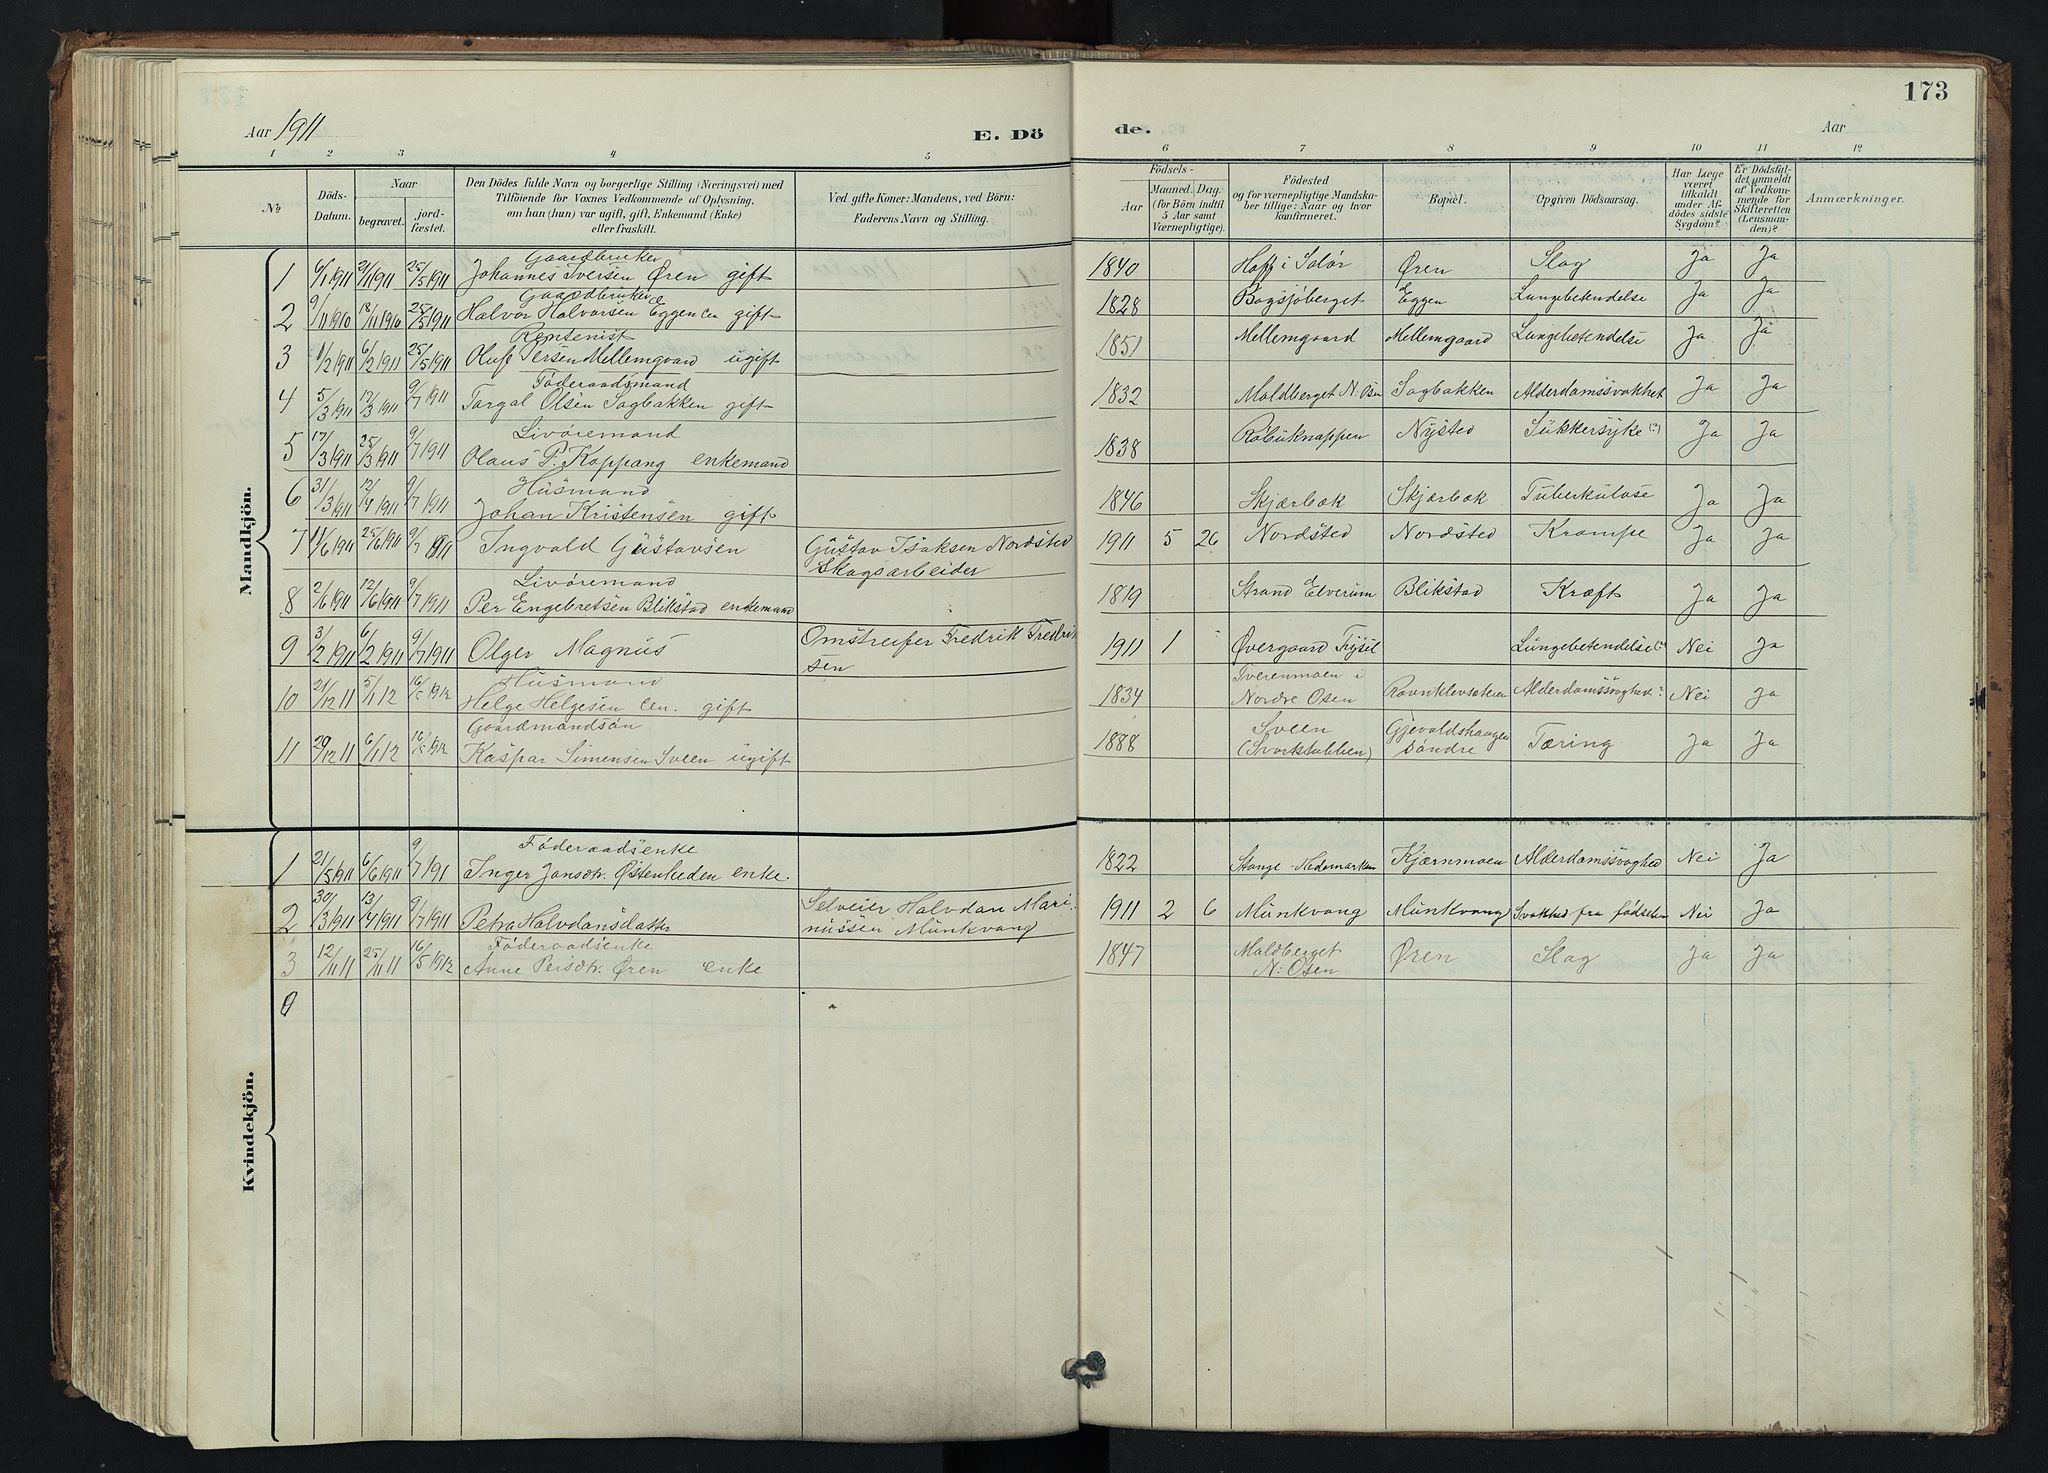 173
Aar 1911 E. Dö
de. Aar
1 2 3 4 5
6 7 8 9 10 11 12
№
Döds-Datum.
Naar
begravet.
jord-fæstet.
Den Dödes fulde Navn og borgerlige Stilling (Næringsvei) med
Tilföiende for Voxnes Vedkommende af Oplysning,
om han (hun) var ugift, gift, Enkemand (Enke)
eller fraskilt.
Ved gifte Koner: Mandens, ved Börn:
Faderens Navn og Stilling.
Födsels-
Aar
Maaned. Dag.
(for Börn indtil
5 Aar samt
Værnepligtige).
Födested
og for værnepligtige Mandska-
ber tillige: Naar og hvor
konfirmeret.
Bopæl.
Opgiven Dödsaarsag.
Har Læge
været
tilkaldt
under Af-
dödes sidste
Sygdom?
Er Dödsfal-
det anmeldt
af Vedkom-
mende for
Skifteretten
(Lensman-
den)?
Anmærkninger.
Mandkjön.
Gaardbruker
1 6/1 1911 21/1 1911 25/5 1911 Johannes Iversen Øren gift 1840 Hoff i Solør Øren Slag Ja Ja
Gaardbruker
2 9/11 1910 18/11 1910 25/5 1911 Halvor Halvorsen Eggen gift 1828 Bogsjöberget Eggen Lungebetendelse Ja Ja
Rentenist
3 1/2 1911 6/2 1911 25/5 1911 Oluf Persen Mellemgaard ugift 1851 Mellemgaard Mellemgaard Lungebetendelse Ja Ja
Föderaadsmand
4 5/3 1911 12/3 1911 9/7 1911 Torgal Olsen Sagbakken gift 1832 Moldberget N. Osen Sagbakken Alderdomssvakhet Ja Ja
Livöremand
5 17/3 1911 25/3 1911 9/7 1911 Olaus P. Koppang enkemand 1838 Röbuknappen Nysted Sukkersyke (?) Ja Ja
Husmand
6 31/3 1911 12/4 1911 9/7 1911 Johan Kristensen gift 1846 Skjærbæk Skjærbæk Tuberkulose Ja Ja
7 11/6 1911 25/6 1911 9/7 1911 Ingvald Gustavsen Gustav Isaksen Nordsted
Skogsarbeider 1911 5 26 Nordsted Nordsted Krampe Ja Ja
Livöremand
8 2/6 1911 12/6 1911 9/7 1911 Per Engebretsen Blikstad enkemand 1819 Strand Elverum Blikstad Kræft Ja Ja
9 3/2 1911 6/2 1911 9/7 1911 Olger Magnus Omstreifer Fredrik Fredrik
sen 1911 1 Øvergaard Trysil Lungebetendelse (?) Nei Ja
Husmand
10 21/12 11 5/1 12 16/5 1912 Helge Helgesen sen. gift 1834 Tverenmoen i
Nordre Osen Ravnklevsæteren Alderdomssvaghed? Nei Ja
Gaardmandsön
11 29/12 11 6/1 12 16/5 1912 Kaspar Simensen Sveen ugift 1888 Sveen
(Svorkstubben) Gjevoldshaugen
söndre Tæring Ja Ja
Kvindekjön.
Föderaadsenke
1 21/5 1911 6/6 1911 9/7 191 Inger Jonsdtr. Østenheden enke. 1822 Stange - Hedemarken Kjærnmoen Alderdomssvaghed Nei Ja
2 30/3 1911 13/4 1911 9/7 1911 Petra Halvdansdatter Selveier Halvdan Mari-
nussen Munkvang 1911 2 6 Munkvang Munkvang Svakhed fra födselen Nei Ja
Föderaadsenke
3 12/11 11 25/11 11 16/5 1912 Anne Persdtr. Øren enke 1847 Moldberget
N: Osen Øren Slag Ja Ja